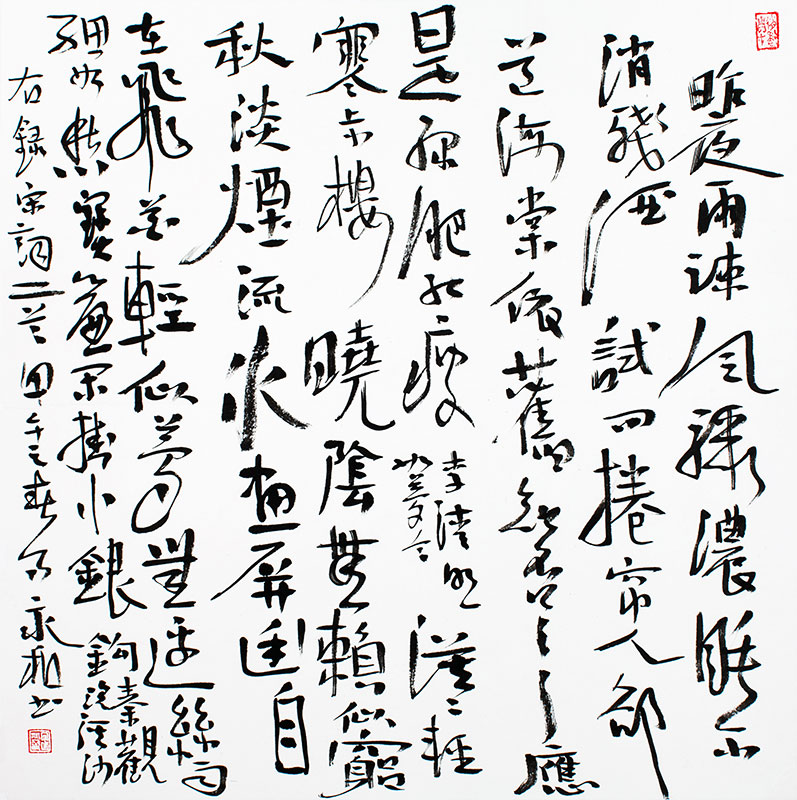 昨夜雨疎風驟濃睡不
消殘酒試問捲帘人卻
道海棠依舊知否〻〻應
是綠肥紅瘦李清照如夢令漠〻輕
寒上小樓曉陰無賴似窮
秋淡煙流水畫屏幽自
在飛花輕似夢無邊絲雨
細如愁寶簾閑掛小銀鉤秦觀浣溪沙
右録宋詞二首甲午之春永書